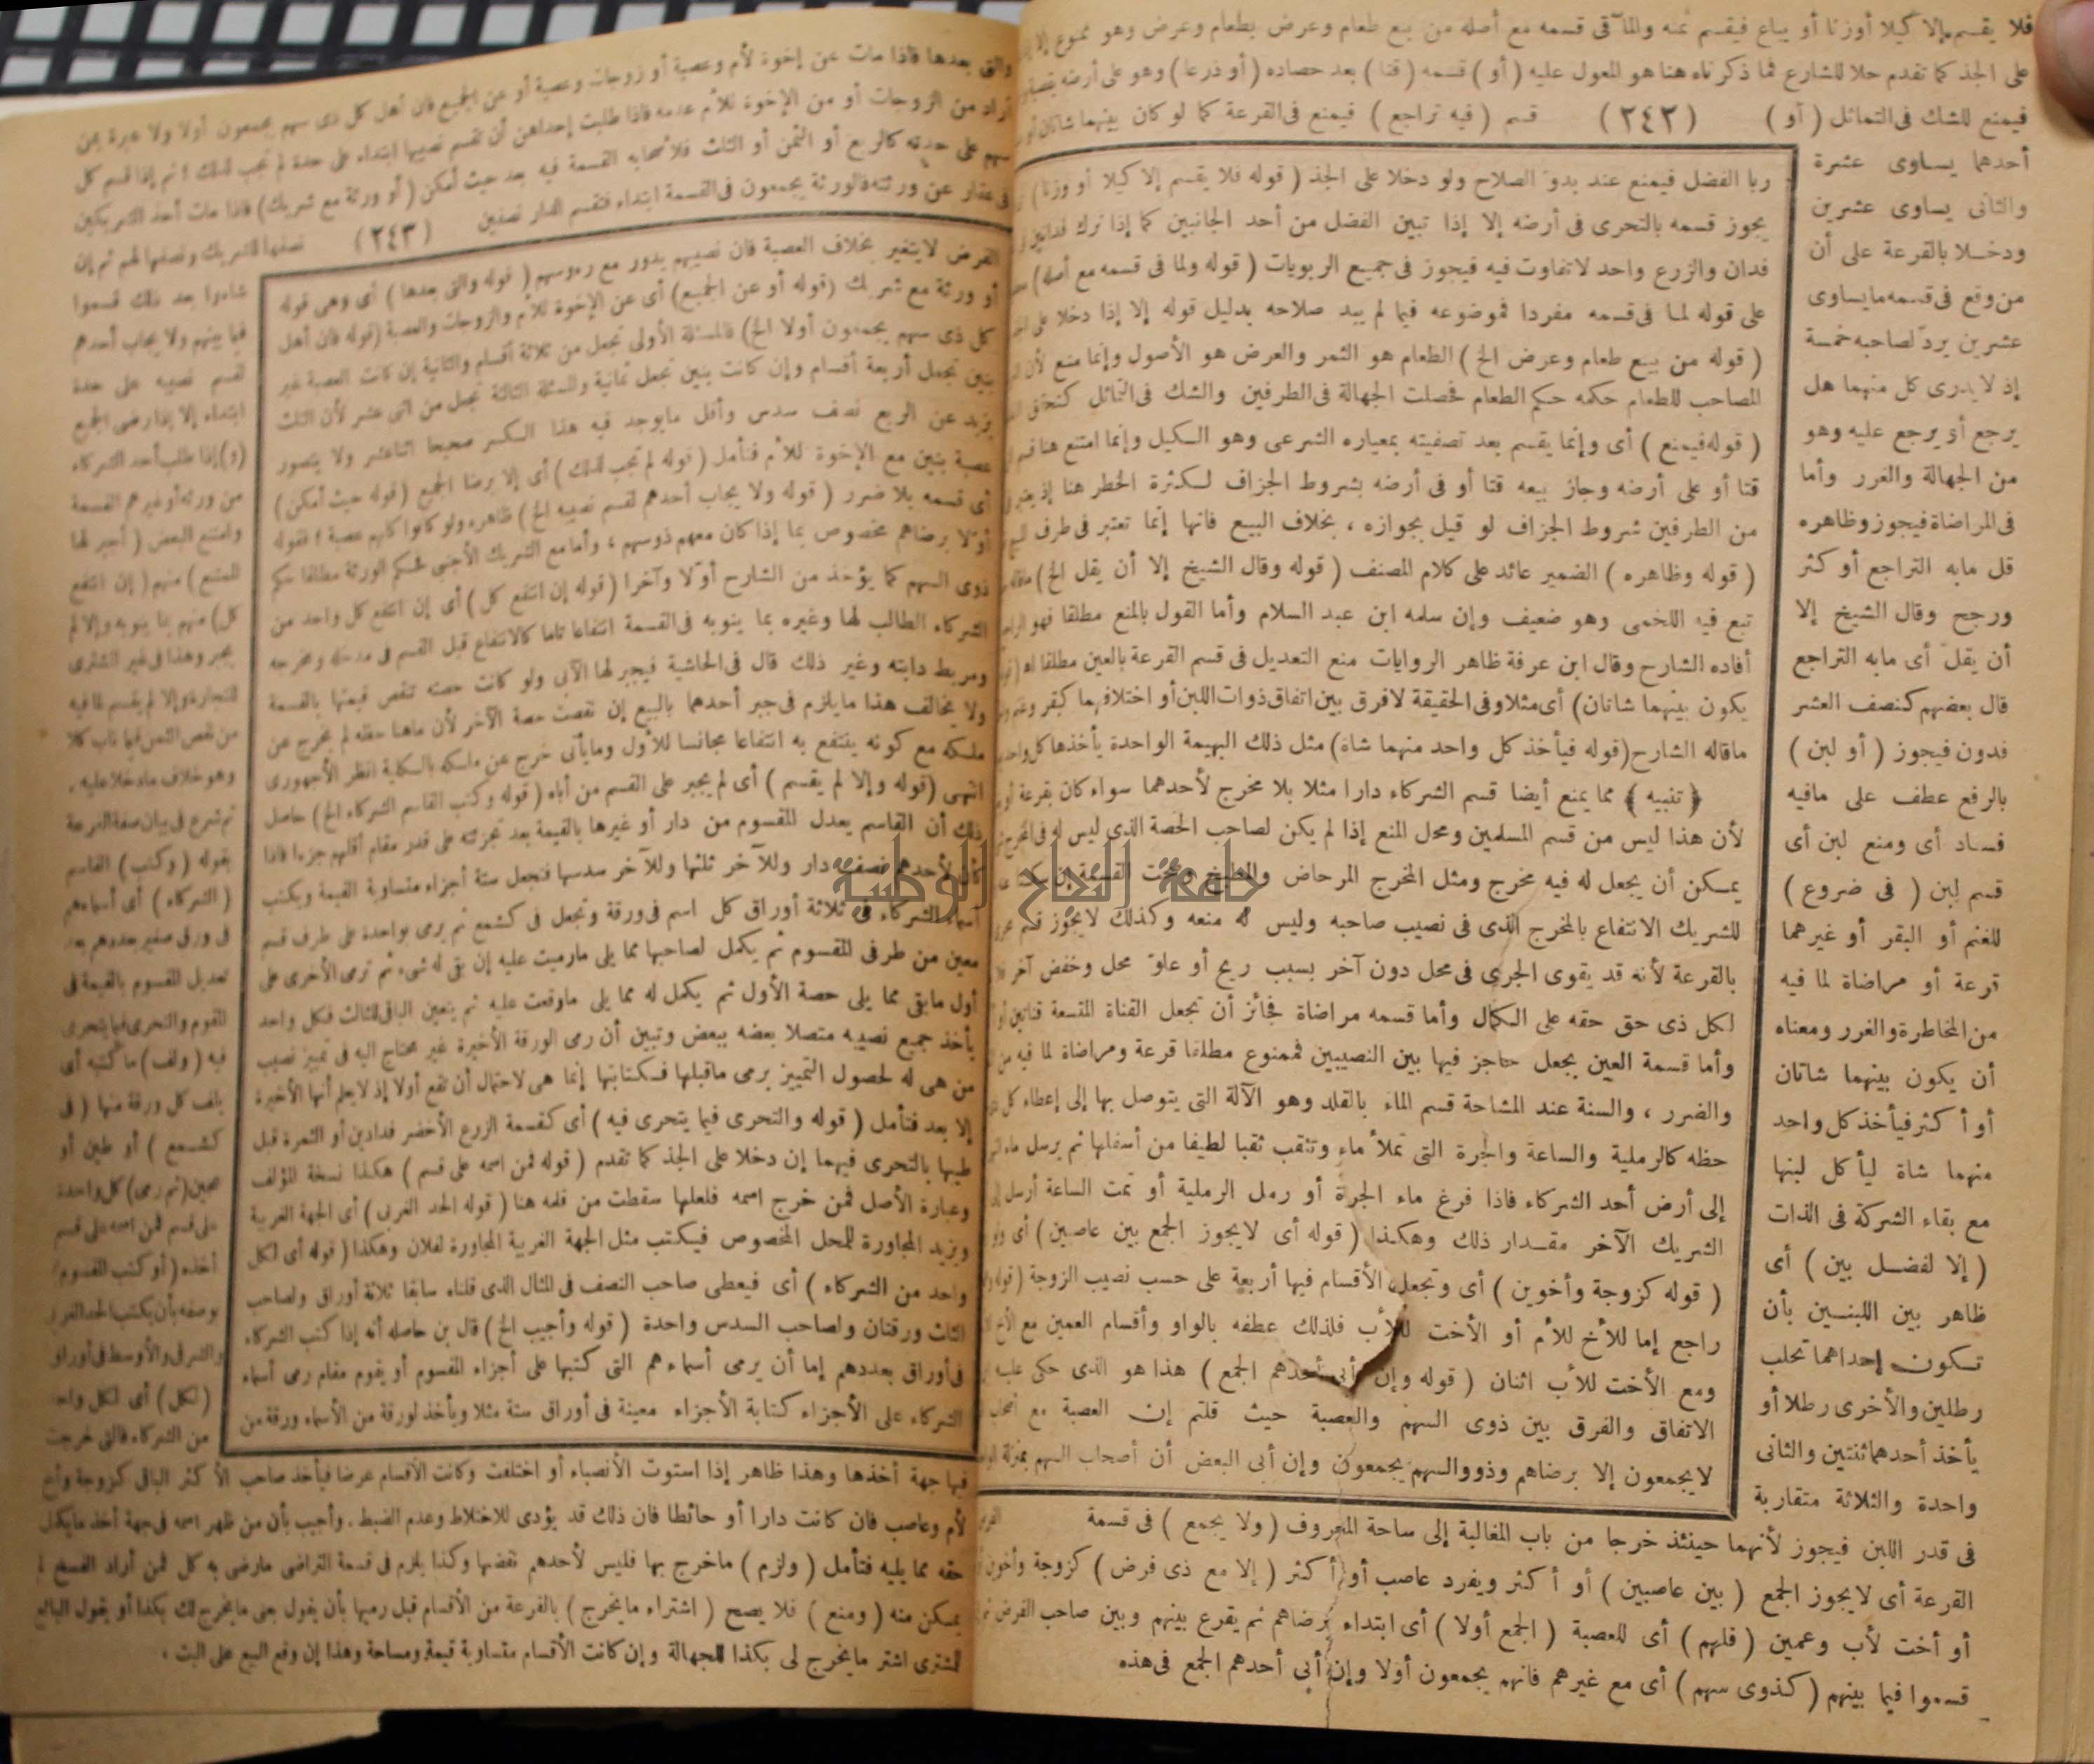 فلا يقسم إلا كيلا أو وزنا أو يباع فيقسم ثمنه ولما قى قسمه مع أصله من بيع طعام وعرض بطعام وعرض وهو ممنوع
على الجذ كما تقدم حلا للشارح فما ذكرناه هنا هو المعول عليه ( أو ) قسمه ( قتا ) بعد حصاده ( أو ذرعا ) وهو على أرضه
فيمنع للشك فى التماثل ( أو ) ( ٢٤٢ ) قسم ( فيه تراجع ) فيمنع فى القرعة كما لو كان بينهما شاتان
أحدهما يساوى عشرة
والثانى يساوى عشرين
ودخلا بالقرعة على أن
من وقع فى قسمه ما يساوى
عشرين يردّ لصاحبه خمسة
إذ لا يدرى كل منهما هل
يرجع أو يرجع عليه وهو
من الجهالة والغرر وأما
فى المراضاة فيجوز وظاهره
قل مابه التراجع أو كثر
ورجح وقال الشيخ إلا
أن يقلّ أى مابه التراجع
قال بعضهم كنصف العشر
فدون فيجوز ( أو لبن )
بالرفع عطف على مافيه
فساد أى ومنع لبن أى
قسم لبن ( فى ضروع )
للغنم أو البقر أو غيرهما
قرعة أو مراضاة لما فيه
من المخاطرة والغرر ومعناه
أن يكون بينهما شاتان
أو أكثر فيأخذ كل واحد
منهما شاة ليأكل لبنها
مع بقاء الشركة فى الذات
( إلا لفضل بين ) أى
ظاهر بين اللبنين بأن
تكون إحداهما تحلب
رطلين والأخرى رطلا أو
يأخذ أحدهما ثنتين والثانى
واحدة والثلاثة متقاربة
ربا الفضل فيمنع عند بدوّ الصلاح ولو دخلا على الجذ ( قوله فلا يقسم إلا كيلا أو وزنا )
يجوز قسمه بالتحرى فى أرضه إلا إذا تبين الفضل من أحد الجانبين كما إذا ترك
فدان والزرع واحد لا تفاوت فيه فيجوز فى جميع الربويات ( قوله ولما فى قسمه مع أصله )
على قوله لما فى قسمه مفردا فموضوعه فيما لم يبد صلاحه بدليل قوله إلا إذا دخلا على
( قوله من بيع طعام وعرض الخ ) الطعام هو الثمر والعرض هو الأصول وإنما منع لأن
المصاحب للطعام حكمه حكم الطعام فحصلت الجهالة فى الطرفين والشك فى التماثل كتحقق
( قوله فيمنع ) أى وإنما يقسم بعد تصفيته بمعياره الشرعى وهو الكيل وإنما امتنع هنا
قتا أو على أرضه وجاز بيعه قتا أو فى أرضه بشروط الجزاف لكثرة الخطر هنا إذ
من الطرفين شروط الجزاف لو قيل بجوازه ، بخلاف البيع فانها إنما تعتبر فى طرف
( قوله وظاهره ) الضمير عائد على كلام المصنف ( قوله وقال الشيخ إلا أن يقل الخ )
تبع فيه اللخمى وهو ضعيف وإن سلمه ابن عبد السلام وأما القول بالمنع مطلقا فهو
أفاده الشارح وقال ابن عرفة ظاهر الروايات منع التعديل فى قسم القرعة بالعين مطلقا اه
يكون بينهما شاتان) أى مثلا وفى الحقيقة لا فرق بين اتفاق ذوات اللبن أو اختلافهما كبقر وغنم
ماقاله الشارح (قوله فيأخذ كل واحد منهما شاة) مثل ذلك البهيمة الواحدة يأخذها كل واحد
﴿ تنبيه ﴾ مما يمنع أيضا قسم الشركاء دارا مثلا بلا مخرج لأحدهما سواء كان بقرعة
لأن هذا ليس من قسم المسلمين ومحل المنع إذا لم يكن لصاحب الحصة الذى ليس له فى
يمكن أن يجعل له فيه مخرج ومثل المخرج المرحاض والمطبخ وصحت القسمة إن سكتا
للشريك الانتفاع بالمخرج الذى فى نصيب صاحبه وليس له منعه وكذلك لا يجوز قسم
بالقرعة لأنه قد يقوى الجرى فى محل دون آخر بسبب ريح أو علوّ محل وخفض آخر
لكل ذى حق حقه على الكمال وأما قسمه مراضاة فجائز أن تجعل القناة المتسعة قناتين
وأما قسمة العين بجعل حاجز فيها بين النصيبين فممنوع مطلقا قرعة ومراضاة لما فيه من
والضرر ، والسنة عند المشاحة قسم الماء بالقلد وهو الآلة التى يتوصل بها إلى إعطاء كل
حظه كالرملية والساعة والجرة التى تملأ ماء وتثقب ثقبا لطيفا من أسفلها ثم يرسل ماء
إلى أرض أحد الشركاء فاذا فرغ ماء الجرة أو رمل الرملية أو تمت الساعة أرسل
الشريك الآخر مقدار ذلك وهكذا ( قوله أى لا يجوز الجمع بين عاصبين ) أى
( قوله كزوجة وأخوين ) أى وتجعل الأقسام فيها أربعة على حسب نصيب الزوجة
راجع إما للأخ للأم أو الأخت للأب فلذلك عطفه بالواو وأقسام العمين مع
ومع الأخت للأب اثنان ( قوله وإن أبى أحدهم الجمع ) هذا هو الذى حكى عليه
الاتفاق والفرق بين ذوى السهم والعصبة حيث قلتم إن العصبة مع
لا يجمعون إلا برضاهم وذوو السهم يجمعون وإن أبى البعض أن أصحاب السهم بمنزلة
فى قدر اللبن فيجوز لأنهما حينئذ خرجا من باب المغالبة إلى ساحة المعروف ( ولا يجمع ) فى قسمة
القرعة أى لا يجوز الجمع ( بين عاصبين ) أو أكثر ويفرد عاصب أو أكثر ( إلا مع ذى فرض ) كزوجة وأخوين
أو أخت لأب وعمين ( فلهم ) أى للعصبة ( الجمع أولا ) أى ابتداء برضاهم ثم يقرع بينهم وبين صاحب الفرض
قسموا فيما بينهم ( كذوى سهم ) أى مع غيرهم فانهم يجمعون أوّلا وإن أبى أحدهم الجمع فى هذه
والتى بعدها فاذا مات عن إخوة لأم وعصبة أو زوجات وعصبة أو عن الجميع فان أهل كل ذى سهم يجمعون أولا ولا عبرة بمن
أراد من الزوجات أو من الإخوة للأم عدمه فاذا طلبت إحداهن أن تقسم نصيبها ابتداء على حدة لم تجب لذلك ثم إذا قسم كل
سهم على حدته كالربع أو الثمن أو الثلث فلأصحابه القسمة فيه بعد حيث أمكن ( أو ورثة مع شريك ) فاذا مات أحد الشريكين
فى عقار عن ورثته فالورثة يجمعون فى القسمة ابتداء فتقسم الدار نصفين ( ٢٤٣ ) نصفها للشريك ونصفها لهم ثم إن
شاءوا بعد ذلك قسموا
فيما بينهم ولا يجاب أحدهم
لقسم نصيبه على حدة
ابتداء إلا إذا رضى الجميع
(و) إذا طلب أحد الشركاء
من ورثة أو غيرهم القسمة
وامتنع البعض ( أجبر لها
الممتنع ) منهم ( إن انتفع
كل) منهم بما ينوبه وإلا لم
يجبر وهذا فى غير المشترى
للتجارة وإلا لم يقسم لما فيه
من نقص الثمن فيما ناب كلا
وهو خلاف مادخلا عليه .
ثم شرع فى بيان صفة القرعة
بقوله ( وكتب ) القاسم
( الشركاء ) أى أسماءهم
فى ورق صغير بعددهم بعد
تعديل المقسوم بالقيمة فى
المقوم والتحرى فيما يتحرى
فيه ( ولف ) ما كتبه أى
يلف كل ورقة منها ( فى
كشمع ) أو طين أو
عجين (ثم رمى) كل واحدة
على قسم فمن اسمه على قسم
أخذه ( أو كتب المقسوم)
بوصفه بأن يكتب الحد الغربى
والشرقى والأوسط فى أوراق
(لكل) أى لكل واحد
من الشركاء فالتى خرجت
الفرض لا يتغير بخلاف العصبة فان نصيبهم يدور مع رءوسهم ( قوله والتى بعدها ) أى وهى قوله
أو ورثة مع شريك (قوله أو عن الجميع) أى عن الإخوة للأم والزوجات والعصبة (قوله فان أهل
كل ذى سهم يجمعون أولا الخ) فالمسئلة الأولى تجعل من ثلاثة أقسام والثانية إن كانت العصبة غير
بنين تجعل أربعة أقسام وإن كانت بنين تجعل ثمانية والمسئلة الثالثة تجعل من اثنى عشر لأن الثلث
يزيد عن الربع نصف سدس وأقل مايوجد فيه هذا الكسر صحيحا اثنا عشر ولا يتصور
عصبة بنين مع الإخوة للأم فتأمل ( قوله لم تجب لذلك ) أى إلا برضا الجميع ( قوله حيث أمكن )
أى قسمه بلا ضرر ( قوله ولا يجاب أحدهم لقسم نصيبه الخ ) ظاهره ولو كانوا كلهم عصبة فقوله
أوّلا برضاهم مخصوص بما إذا كان معهم ذو سهم ، وأما مع الشريك الأجنبى فحكم الورثة مطلقا حكم
ذوى السهم كما يؤخذ من الشارح أوّلا وآخرا ( قوله إن انتفع كل ) أى إن انتفع كل واحد من
الشركاء الطالب لها وغيره بما ينوبه فى القسمة انتفاعا تاما كالانتفاع قبل القسم فى مدخله ومخرجه
ومربط دابته وغير ذلك قال فى الحاشية فيجبر لها الآبى ولو كانت حصته تنقص قيمتها بالقسمة
ولا يخالف هذا ما يلزم فى جبر أحدهما بالبيع إن نقصت حصة الآخر لأن ماهنا حقه لم يخرج عن
ملكه مع كونه ينتفع به انتفاعا مجانسا للأول ومايأتى خرج عن ملكه بالكلية انظر الأجهورى
انتهى (قوله وإلا لم يقسم ) أى لم يجبر على القسم من أباه ( قوله وكتب القاسم الشركاء الخ ) حاصل
ذلك أن القاسم يعدل المقسوم من دار أو غيرها بالقيمة بعد تجزئته على قدر مقام أقلهم جزءا فاذا
كان لأحدهم نصف دار وللآخر ثلثها وللآخر سدسها فتجعل ستة أجزاء متساوية القيمة ويكتب
أسماء الشركاء فى ثلاثة أوراق كل اسم فى ورقة وتجعل فى كشمع ثم يرمى بواحدة على طرف قسم
معين من طرفى المقسوم ثم يكمل لصاحبها مما يلى مارميت عليه إن بقى له شىء ثم ترمى الأخرى على
أول مابقى مما يلى حصة الأول ثم يكمل له مما يلى ماوقعت عليه ثم يتعين الباقى للثالث فكل واحد
يأخذ جميع نصيبه متصلا بعضه ببعض وتبين أن رمى الورقة الأخيرة غير محتاج اليه فى تمييز نصيب
من هى له لحصول التمييز برمى ماقبلها فكتابتها إنما هى لاحتمال أن تقع أولا إذ لا يعلم أنها الأخيرة
إلا بعد فتأمل ( قوله والتحرى فيما يتحرى فيه ) أى كقسمة الزرع الأخضر فدادين أو الثمرة قبل
طيبها بالتحرى فيهما إن دخلا على الجذ كما تقدم ( قوله فمن اسمه على قسم ) هكذا نسخة المؤلف
وعبارة الأصل فمن خرج اسمه فلعلها سقطت من قلمه هنا ( قوله الحد الغربى ) أى الجهة الغربية
ويزيد المجاورة للمحل المخصوص فيكتب مثل الجهة الغربية المجاورة لفلان وهكذا ( قوله أى لكل
واحد من الشركاء ) أى فيعطى صاحب النصف فى المثال الذى قلناه سابقا ثلاثة أوراق ولصاحب
الثلث ورقتان ولصاحب السدس واحدة ( قوله وأجيب الخ ) قال بن حاصله أنه إذا كتب الشركاء
فى أوراق بعددهم إما أن يرمى أسماءهم التى كتبها على أجزاء المقسوم أو يقوم مقام رمى أسماء
الشركاء على الأجزاء كتابة الأجزاء معينة فى أوراق ستة مثلا ويأخذ لورقة من الأسماء ورقة من
فيها جهة أخذها وهذا ظاهر إذا استوت الأنصباء أو اختلفت وكانت الأقسام عرضا فيأخذ صاحب الأكثر الباقى كزوجة وأخ
لأم وعاصب فان كانت دارا أو حائطا فان ذلك قد يؤدى للاختلاط وعدم الضبط . وأجيب بأن من ظهر اسمه فى جهة أخذ مايكمل
حقه مما يليه فتأمل ( ولزم ) ماخرج بها فليس لأحدهم نقضها وكذا يلزم فى قسمة التراضى مارضى به كل فمن أراد الفسخ لم
يمكن منه ( ومنع ) فلا يصح ( اشتراء مايخرج ) بالقرعة من الأقسام قبل رميها بأن يقول بعنى مايخرج لك بكذا أو يقول البائع
للمشترى اشتر مايخرج لى بكذا للجهالة وإن كانت الأقسام متساوية قيمة ومساحة وهذا إن وقع البيع على البت .
جامعة النجاح الوطنية